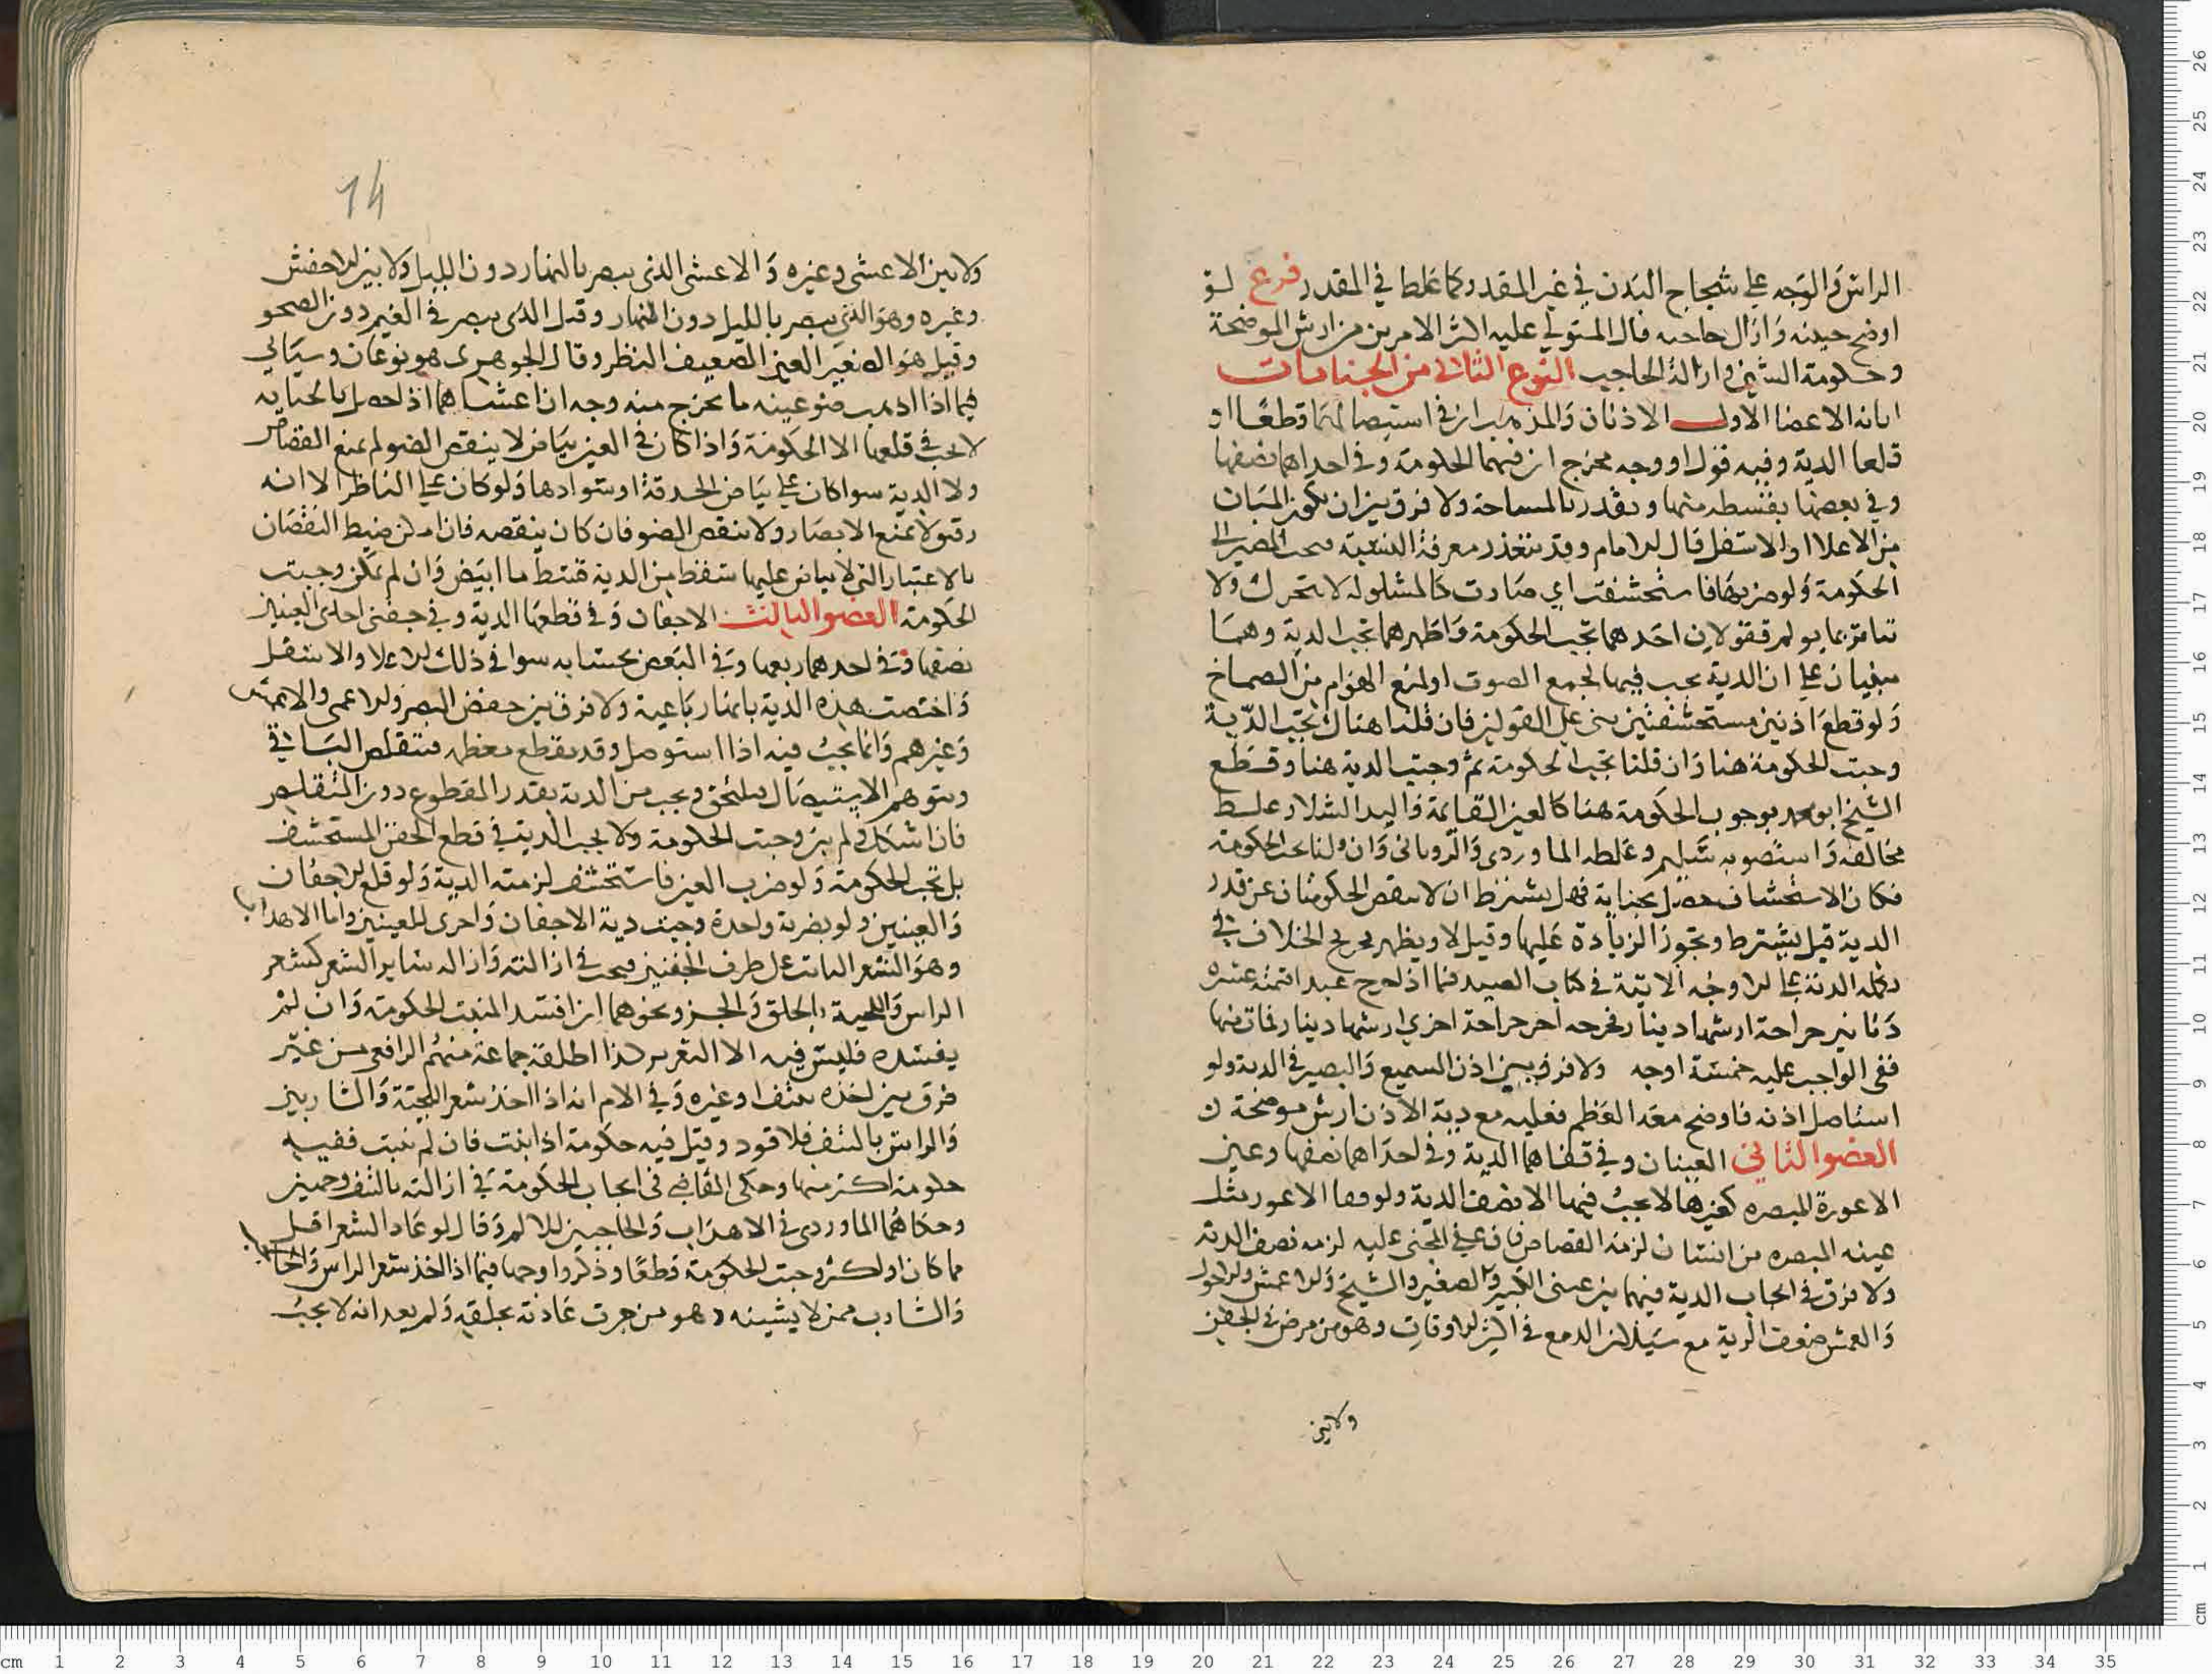 الراس والوجه على شجاج البدن في غير المقدر كما غلطا في المقدر فرع لو
اوضح جبينه وازال حاجبه قال المتولي عليه اكثر الامرين من ارش الموضحة
وحكومة الشين وازالة الحاجب النوع الثاني من الجنايات
ابانة الاعضا الاول الاذنان والمذهب ان في استيصالهما قطعا او
قلعا الدية وفيه قول او وجه مخرج ان فيهما الحكومة وفي احداهما نصفها
وفي بعضها بقسطه منها ويقدر بالمساحة ولا فرق بين ان يكون المبان
من الاعلا او الاسفل قال الامام وقد يتعذر معرفة النسبة فيجب المصير الى
الحكومة ولو ضربهما فاستحشفت اي صارت كالمشلوله لا تتحرك ولا
تتاثر بما يولم فقولان احدهما تجب الحكومة واظهرهما تجب الدية وهما
مبنيان على ان الدية يجب فيهما لجمع الصوت او لمنع الهوام من الصماخ
ولو قطع اذنين مستحشفتين بني على القولين فان قلنا هناك تجب الدية
وجبت الحكومة هنا وان قلنا تجب الحكومة ثم وجبت الدية هنا وقطع
الشيخ ابو محمد بوجوب الحكومة هنا كالعين القايمة واليد الشلا وغلط
مخالفه واستصوبه وغلطه الماوردي والروياني وان قلنا يجب الحكومة
فكان الاستحشاف حصل بجناية فهل يشترط ان لا ينقص الحكومتان عن قدر
الدية قيل يشترط وتجوز الزيادة عليها وقيل لا ويظهر تخريج الخلاف في
تكملة الدية على الاوجه الاتية في كتاب الصيد فيما اذا جرح عبدا قيمته عشرة
دنانير جراحة ارشها دينار فجرحه اخر جراحة اخري ارشها دينار فمات منها
ففي الواجب عليه خمسة اوجه ولا فرق بين اذن السميع والبصير في الدية ولو
استاصل اذنه فاوضح معه العظم فعليه مع دية الاذن ارش موضحة ن
العضو الثاني العينان وفي الدية وفي احداهما نصفها وعين
الاعورة المبصره كغيرها لا يجب فيها الا نصف الدية ولو فقا الاعور مثل
عينه المبصره من انسان لزمه القصاص فان عفى المجني عليه لزمه نصف الدية
ولا فرق في ايجاب الدية فيهما بين عيني الكبير والصغير والشيخ والاعمش والاحول
والعمش ضعف الروية مع سيلان الدمع في اكثر الاوقات وهو من مرض في الجفن
ولا بين
14
ولا بين الاعشى وغيره والاعشى الذي يبصر بالنهار دون الليل ولا بين الاخفش
وغيره وهو الذي يبصر بالليل دون النهار وقيل الذي يبصر في الغيم دون الصحو
وقيل هو الصغير العين الضعيف النظر وقال الجوهري هو نوعان وسياتي
فيما اذا اذهب ضو عينه ما يخرج منه وجه ان اذا حصل بالجناية
لا يجب في قلعها الا الحكومة واذا كان في العين بياض لا ينقص الضو لم يمنع القصاص
ولا الدية سوا كان على بياض الحدقة او سوادها ولو كان على الناظر الا انه
رقيق لا يمنع الابصار ولا ينقص الضو فان كان ينقصه فان امكن ضبط النقصان
بالاعتبار التي لا بياض عليها سقط من الدية قسط ما ابيض وان لم يمكن وجبت
الحكومة العضو الثالث الاجفان وفي قطعها الدية وفي جفني احدى العينين
نصفها وفي احدهما ربعها وفي البعض بحسابه سوا في ذلك الاعلا والاسفل
واختصت هذه الدية بانها رباعية ولا فرق بين جفن البصير والاعمى والاعمش
وغيرهم وانما يجب فيه اذا استوصل وقد يقطع معظمه فيتقلص الباقي
ويتوهم الاستيصال ويجب من الدية بقدر المقطوع دون المتقلص
فان اشكل ولم يبن وجبت الحكومة ولا يجب الدية في قطع الجفن المستحشف
بل تجب الحكومة ولو ضرب العين فاستحشف لزمته الدية ولو قلع الاجفان
والعينين ولو بضربة واحدة وجبت دية الاجفان واخرى للعينين واما الاهداب
وهو الشعر النابت على طرف الجفنين فيجب في ازالته وازالة ساير الشعر كشعر
الراس واللحية بالحلق والجز ونحوهما ان افسد المنبت الحكومة وان لم
يفسده فليس فيه الا التعزير كذا اطلقه جماعة منهم الرافعي من غير
فرق بين اخذه بنتف او غيره وفي الام انه اذا اخذ شعر اللحية والشاربين
والراس بالنتف فلا قود وقيل فيه حكومة اذا نبت فان لم ينبت ففيه
حكومة اكثر منها وحكى القاضي في ايجاب الحكومة في ازالته بالنتف وجهين
وحكاهما الماوردي في الاهداب والحاجبين للالم وقال لو عاد الشعر اقل
مما كان او اكثر وجبت الحكومة قطعا وذكروا وجها فيما اذا اخذ شعر الراس
والشارب ممن لا يشينه وهو من جرت عادته بحلقه ولم يعد انه لا يجب